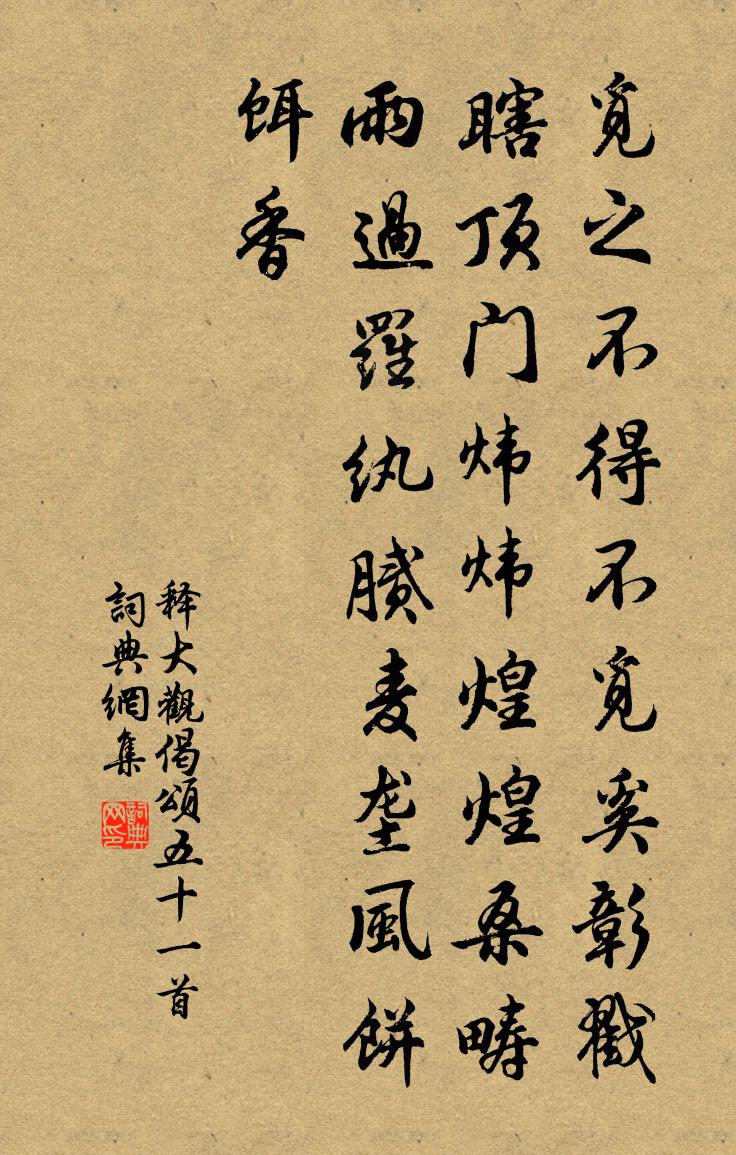 覓之不得不覓奚彰戳
瞎顶门炜炜煌煌桑畴
雨過羅纨膹麦垄風餅
餌香
释大觀偈頌五十一首
詞典網集
詞典網印